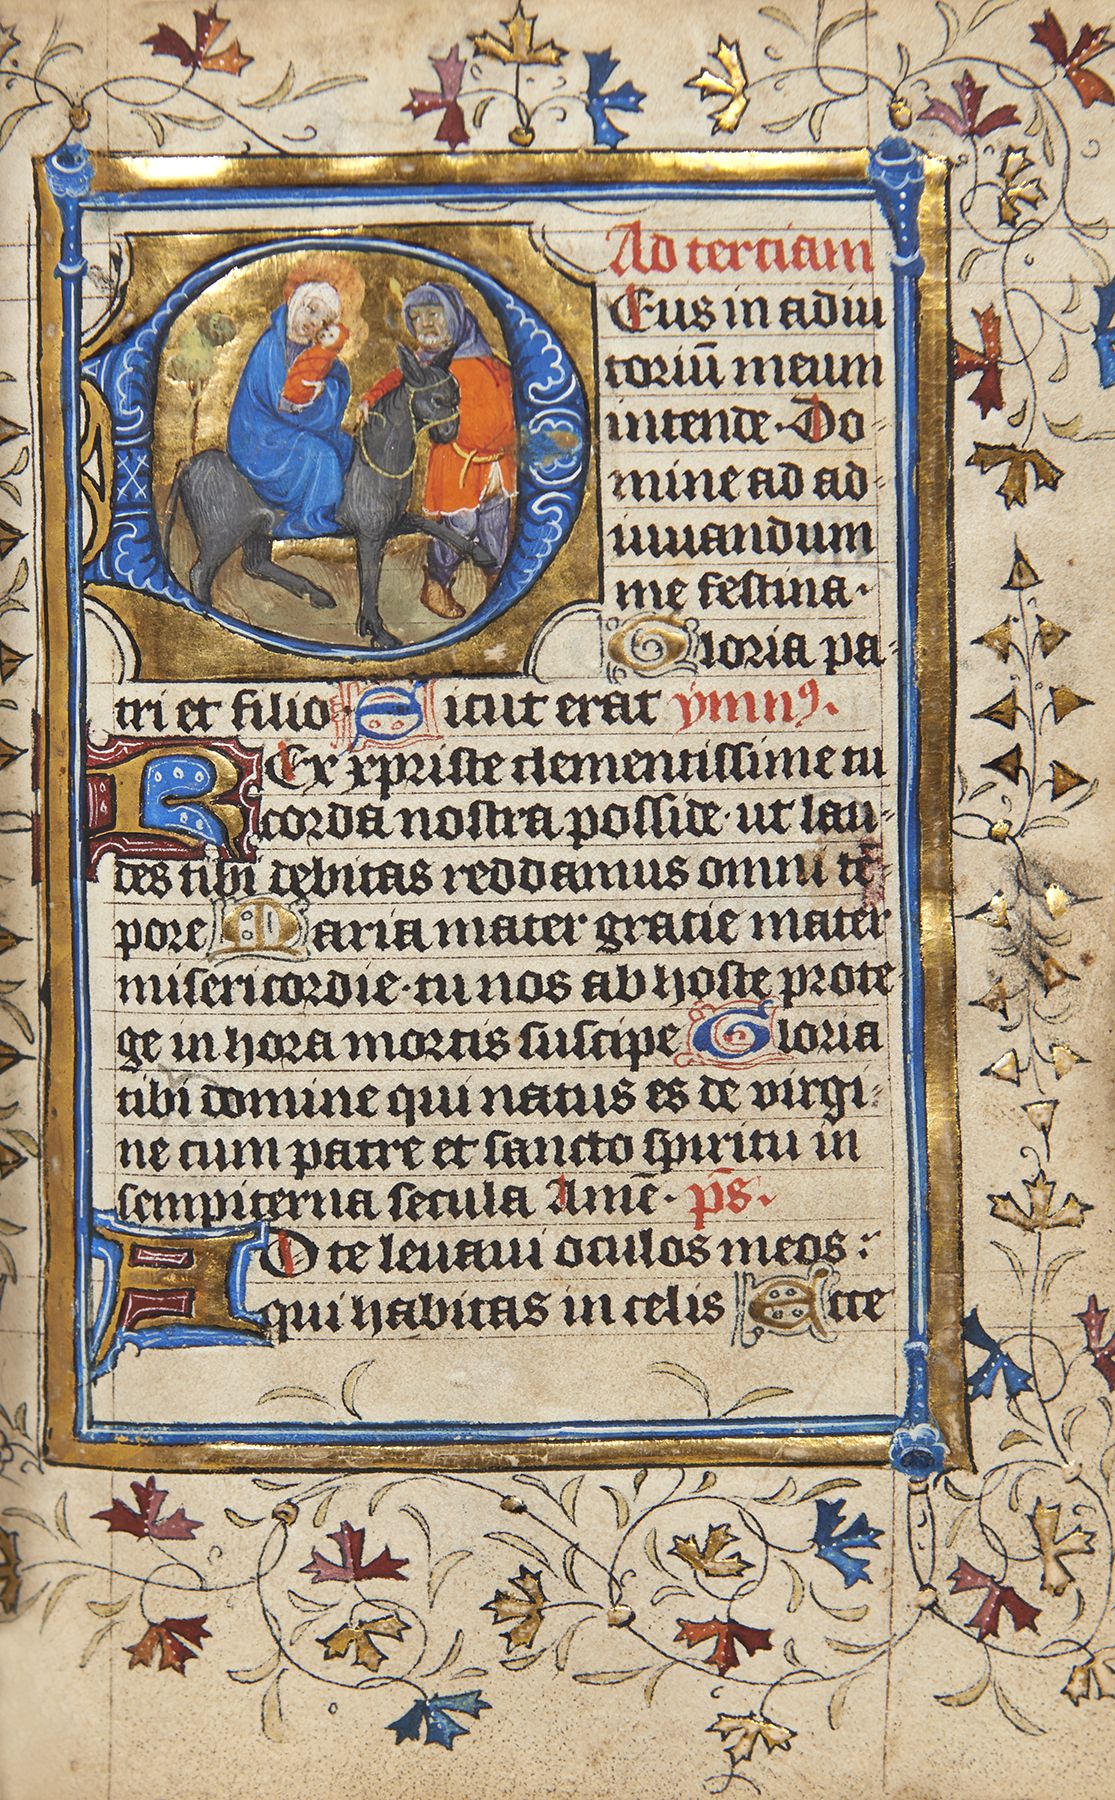 Ad terciam
DEus in adiu
toriū meum
intende · Do-
mine ad ad-
iuuandum
me festina ·
Gloria pa-
tri et filio · Sicut erat ymnꝰ.
REx xpriste clementissime tu
corda nostra posside · ut lau-
des tibi debitas reddamus omni tē-
pore Maria mater gracie mater
misericordie · tu nos ab hoste prote
ge in hora mortis suscipe Gloria
tibi domine qui natus es de virgi-
ne cum patre et sancto spiritu in
sempiterna secula Amē · p̄s.
AD te leuaui oculos meos :
qui habitas in celis Ecce